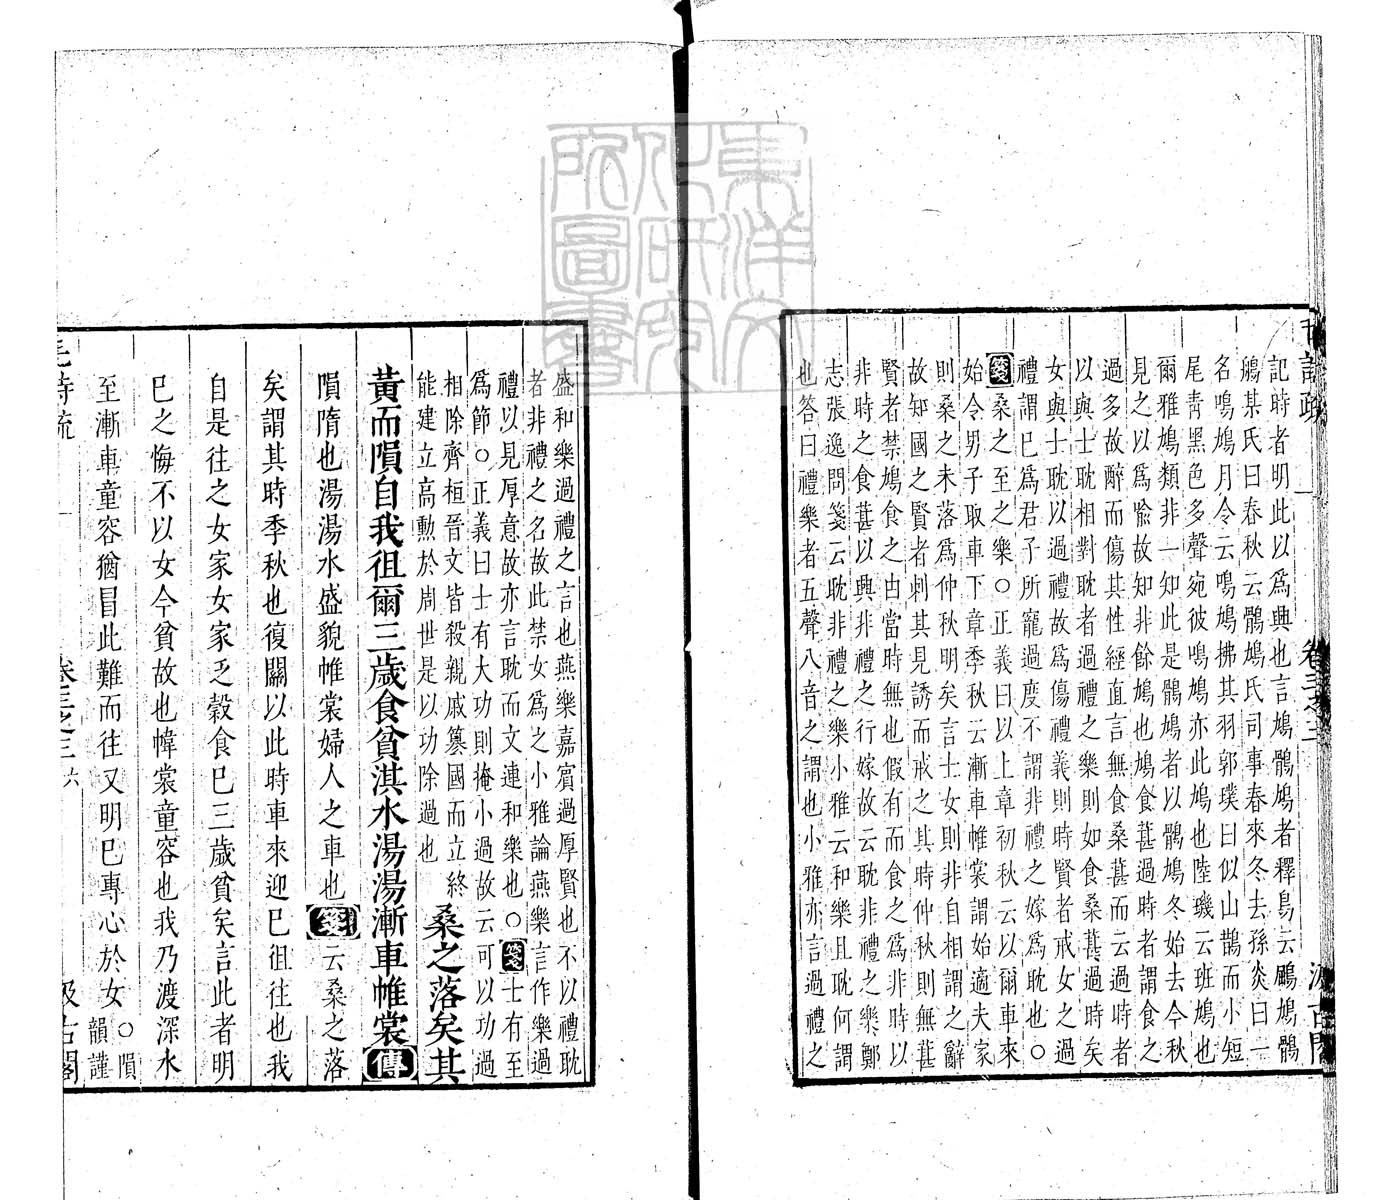 記時者明此以爲興也言鳩鶻鳩者釋鳥云鶌鳩鶻
鵃某氏曰春秋云鶻鳩氏司事春來冬去孫炎曰一
名鳴鳩月令云鳴鳩拂其羽郭璞曰似山鵲而小短
尾青黑色多聲宛彼鳴鳩亦此鳩也陸璣云班鳩也
爾雅鳩類非一知此是鶻鳩者以鶻鳩冬始去今秋
見之以爲喻故知非餘鳩也鳩食葚過時者謂食之
過多故醉而傷其性經直言無食桑葚而云過時者
以與士耽相對耽者過禮之樂則如食桑葚過時矣
女與士耽以過禮故爲傷禮義則時賢者戒女之過
禮謂已爲君子所寵過度不謂非禮之嫁爲耽也○
箋桑之至之樂○正義曰以上章初秋云以爾車來
始令男子取車下章季秋云漸車帷裳謂始適夫家
則桑之未落爲仲秋明矣言士女則非自相謂之辭
故知國之賢者刺其見誘而戒之其時仲秋則無葚
賢者禁鳩食之由當時無也假有而食之爲非時以
非時之食葚以興非禮之行嫁故云耽非禮之樂鄭
志張逸問箋云耽非禮之樂小雅云和樂且耽何謂
也答曰禮樂者五聲八音之謂也小雅亦言過禮之
盛和樂過禮之言也燕樂嘉賓過厚賢也不以禮耽
者非禮之名故此禁女爲之小雅論燕樂言作樂過
禮以見厚意故亦言耽而文連和樂也○箋士有至
爲節○正義曰士有大功則掩小過故云可以功過
相除齊桓晉文皆殺親戚簒國而立終
能建立高勳於周世是以功除過也
桑之落矣其
黃而隕自我徂爾三歲食貧淇水湯湯漸車帷裳傳
隕隋也湯湯水盛貌帷裳婦人之車也箋云桑之落
矣謂其時季秋也復關以此時車來迎已徂往也我
自是往之女家女家乏穀食已三歲貧矣言此者明
已之悔不以女今貧故也幃裳童容也我乃渡深水
至漸車童容猶冒此難而往又明已專心於女
○隕
韻謹
毛詩疏
卷三之三
六
汲古閣